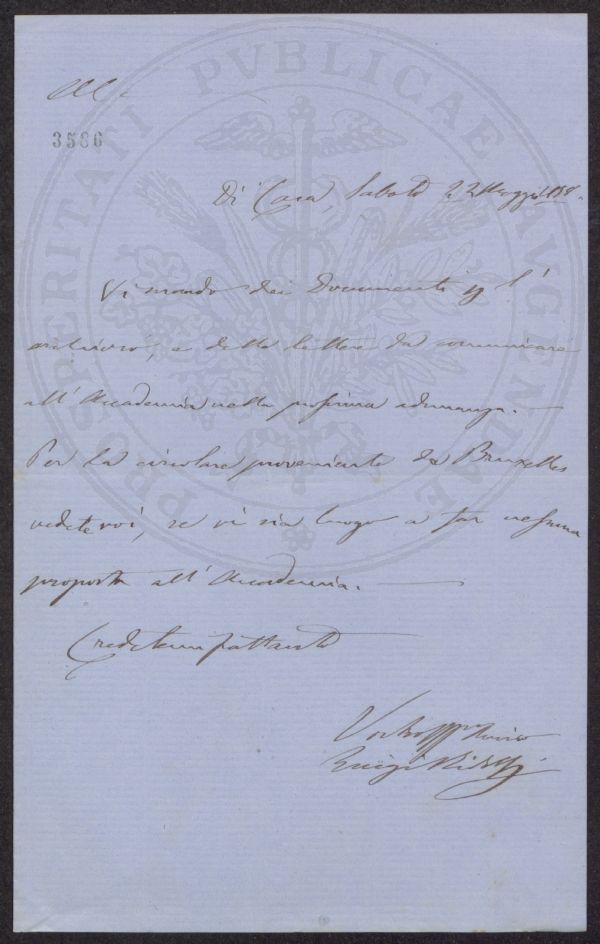 3586
Di Casa, Sabato 22 Maggio 1858.
Vi mando dei Documenti p l'
archivio, e delle lettere da comunicare
all'Accademia nella prossima adunanza. —
Per la circolare proveniente da Bruxelles
vedete voi, se vi sia luogo a far nessuna
proposta all'Accademia. —
Credetemi frattanto
Vostro Amico
Luigi Ridolfi
PROSPERITATI PVBLICAE AVGENDAE